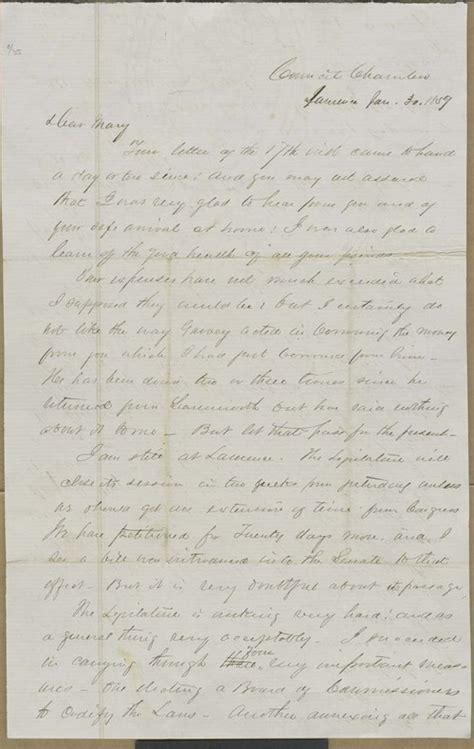 Council Chamber
Lawrence Jan. 30. 1859
Dear Mary
Your letter of the 17th inst. came to hand
a day or two since; and you may rest assured
that I was very glad to hear from you and of
your safe arrival at home; I was also glad to
learn of the good health of all your friends
Your expenses have not much exceeded what
I supposed they would be; but I certainly do
not like the way acted in borrowing the money
from you which I had just borrowed from him—
He has been down two or three times since he
returned from Leavenworth but has said nothing
about it to me — But let that pass for the present—
I am still at Lawrence. The Legislature will
close its session in two weeks from yesterday unless
us get an extension of time from Congress
We have petitioned for Twenty days more, and I
see a bill was introduced into the Senate to that
effect — But it is very doubtful about its passage
The Legislature is working very hard; and as
a general thing very acceptably. I succeeded
in carrying through four very important meas-
ures — One electing a Board of Commissioners
to codify the Laws — Another annexing all that